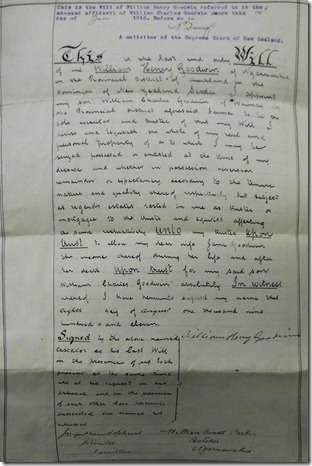 This is the Will of William Henry Goodwin referred to in the
annexed affidavit of William Charles Goodwin sworn this
day of June 1916. Before me
A solicitor of the Supreme Court of New Zealand.
This is the last and only Will
of me William Henry Goodwin of Ngaruawahia
in the Provincial District of Auckland in the
Dominion of New Zealand Settler I appoint
my son William Charles Goodwin of Waimai in
the Provincial District aforesaid Farmer to be the
sole executor and trustee of this my Will I
devise and bequeath the whole of my real and
personal property of or to which I may be
seized possessed or entitled at the time of my
decease and whether in possession reversion
remainder or expectancy according to the tenure
nature and quality thereof respectively but subject
as regards estates vested in me as trustee or
mortgagee to the trusts and equities affecting
the same respectively Unto my trustee Upon
trust to allow my dear wife Jane Goodwin
the income thereof during her life and after
her death Upon trust for my said son
William Charles Goodwin absolutely In witness
whereof I have hereunto signed my name this
eighth day of August one thousand nine
hundred and eleven.
Signed by the above named
testator as his last Will
in the presence of us both
present at the same time
who at his request in his
presence and in the presence
of each other have hereunto
subscribed our names as
witnesses
William Henry Goodwin
Solicitor
Hamilton
William Ernest
Butcher
Ngaruawahia